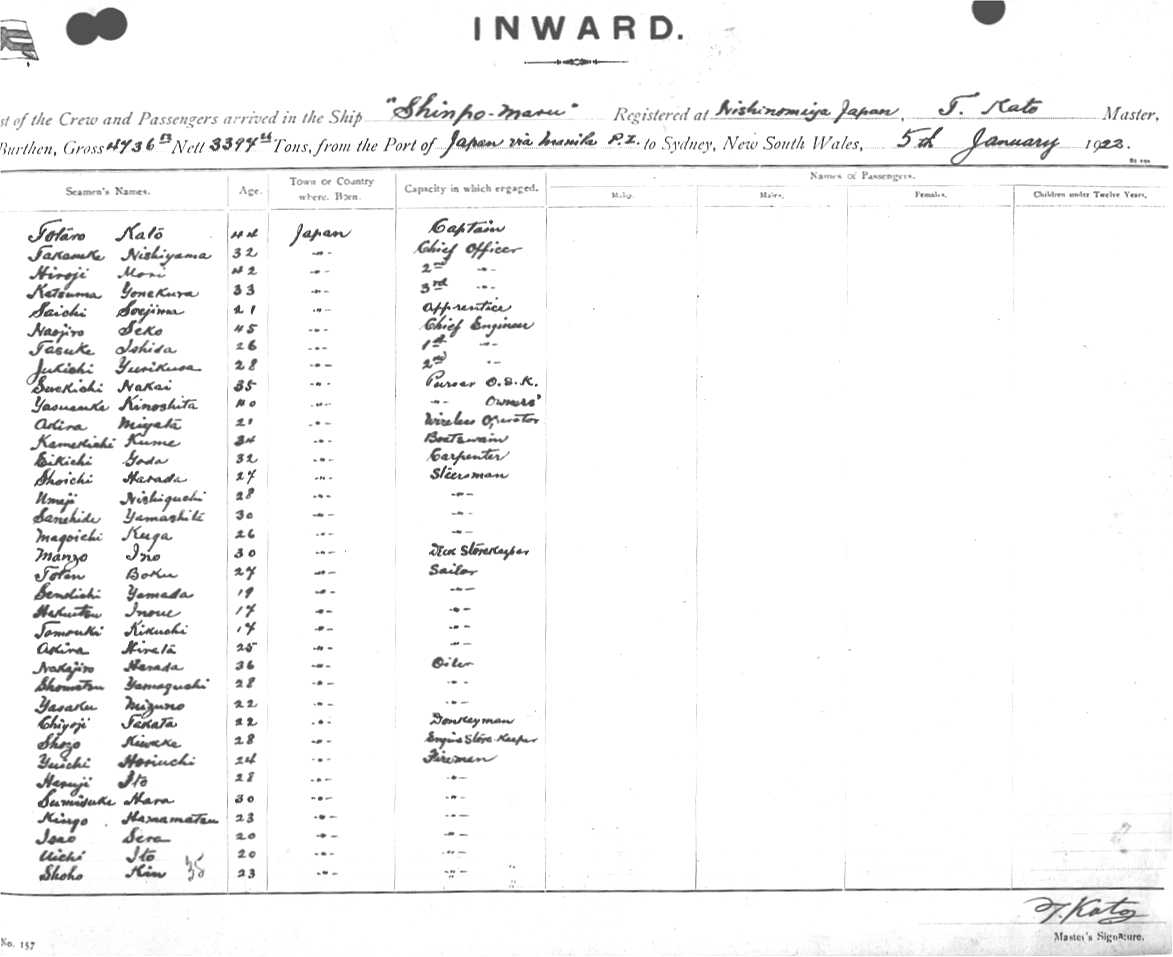 INWARD.
st of the Crew and Passengers arrived in the Ship "Shinpo-maru" Registered at Nishinomiya Japan, T. Kato Master,
Burthen, Gross 4736 Nett 3394 Tons, from the Port of Japan via Manila P.I. to Sydney, New South Wales, 5th January 1922.
Seamen's Names. Age. Town or Country where Born. Capacity in which engaged. Names of Passengers.
Males, Females, Children under Twelve Years,
Totaro Kato 44 Japan Captain
Takasuke Nishiyama 32 -"- Chief Officer
Hiroji Mori 42 -"- 2nd -"-
Katsuma Yonekura 33 -"- 3rd -"-
Saichi Soejima 21 -"- Apprentice
Naojiro Seko 45 -"- Chief Engineer
Tasuke Ishida 26 -"- 1st -"-
Jukichi Yurikusa 28 -"- 2nd -"-
Suekichi Nakai 35 -"- Purser O.S.K.
Yasusuke Kinoshita 40 -"- -"- Owners'
Akira Miyata 21 -"- Wireless Operator
Kamekichi Kume 34 -"- Boatswain
Eikichi Yoda 32 -"- Carpenter
Shoichi Harada 27 -"- Steersman
Umeji Nishiguchi 28 -"- -"-
Sanehide Yamashita 30 -"- -"-
Magoichi Kuga 26 -"- -"-
Manzo Ino 30 -"- Deck Storekeeper
Totan Boku 27 -"- Sailor
Yamada 19 -"- -"-
Inoue 17 -"- -"-
Kikuchi 17 -"- -"-
Akira Hirata 25 -"- -"-
Nakajiro Harada 36 -"- Oiler
Shomatsu Yamaguchi 28 -"- -"-
Yasaku Mizuno 22 -"- -"-
Chiyoji Takata 22 -"- Donkeyman
Shozo 28 -"- Engine Store Keeper
Yuichi Horiuchi 24 -"- Fireman
Haruji Ito 28 -"- -"-
Sumisuke Hara 30 -"- -"-
Kingo Hamamatsu 23 -"- -"-
Isao Sera 20 -"- -"-
Uichi Ito 20 -"- -"-
Shoho Kin 35 23 -"- -"-
T. Kato
Master's Signature.
No. 157